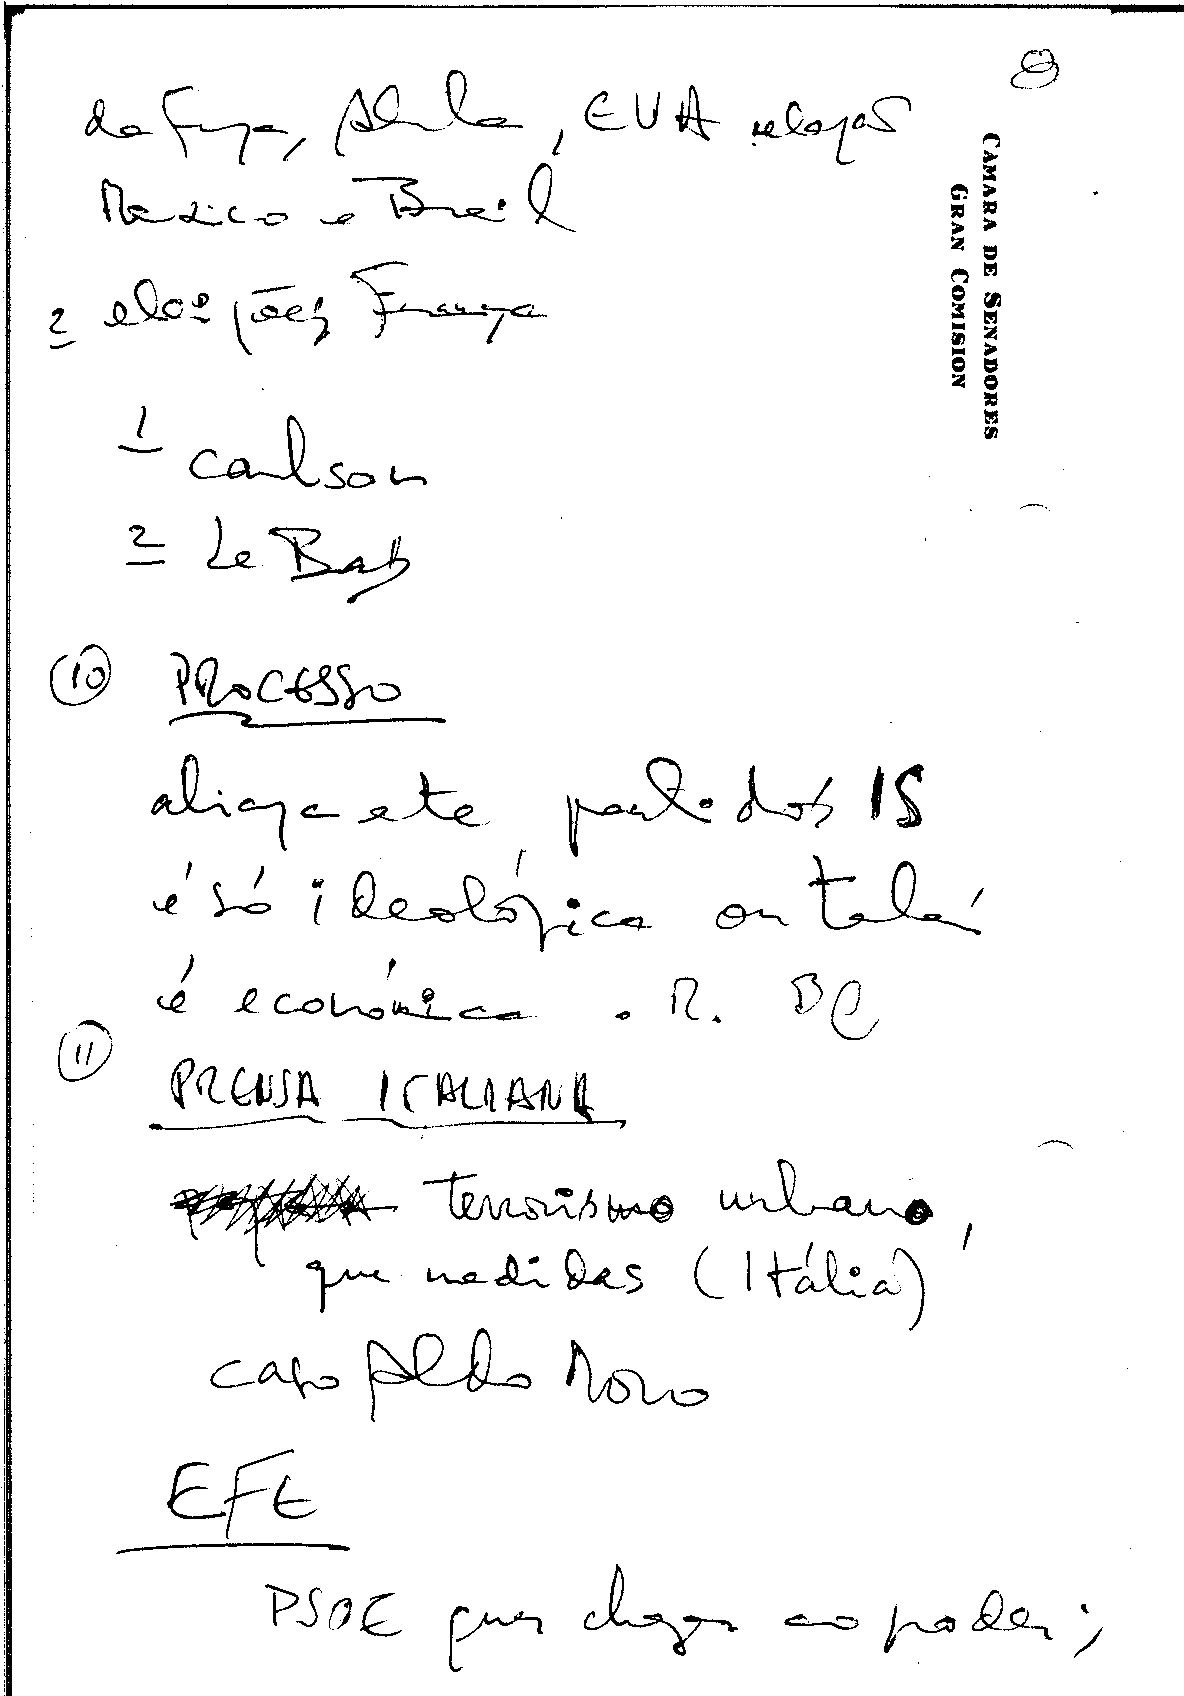 CAMARA DE SENADORES
GRAN COMISION
da França, , EUA relações
Mexico e Brasil
2 eleições França
1 Carlson
2 Le Bab
10 PROCESSO
aliança etc partidos IS
é só ideológica ou tala
é económica . R. BC
11
PRENSA ITALIANA
terrorismo urbano,
que medidas (Itália)
caso Aldo Moro
EFE
PSOE quer chegar ao poder;